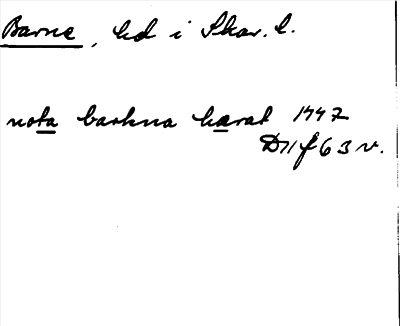 Barne, hd i Skar. l.
nota barkna hærat 1447
D 11 f 63 v.